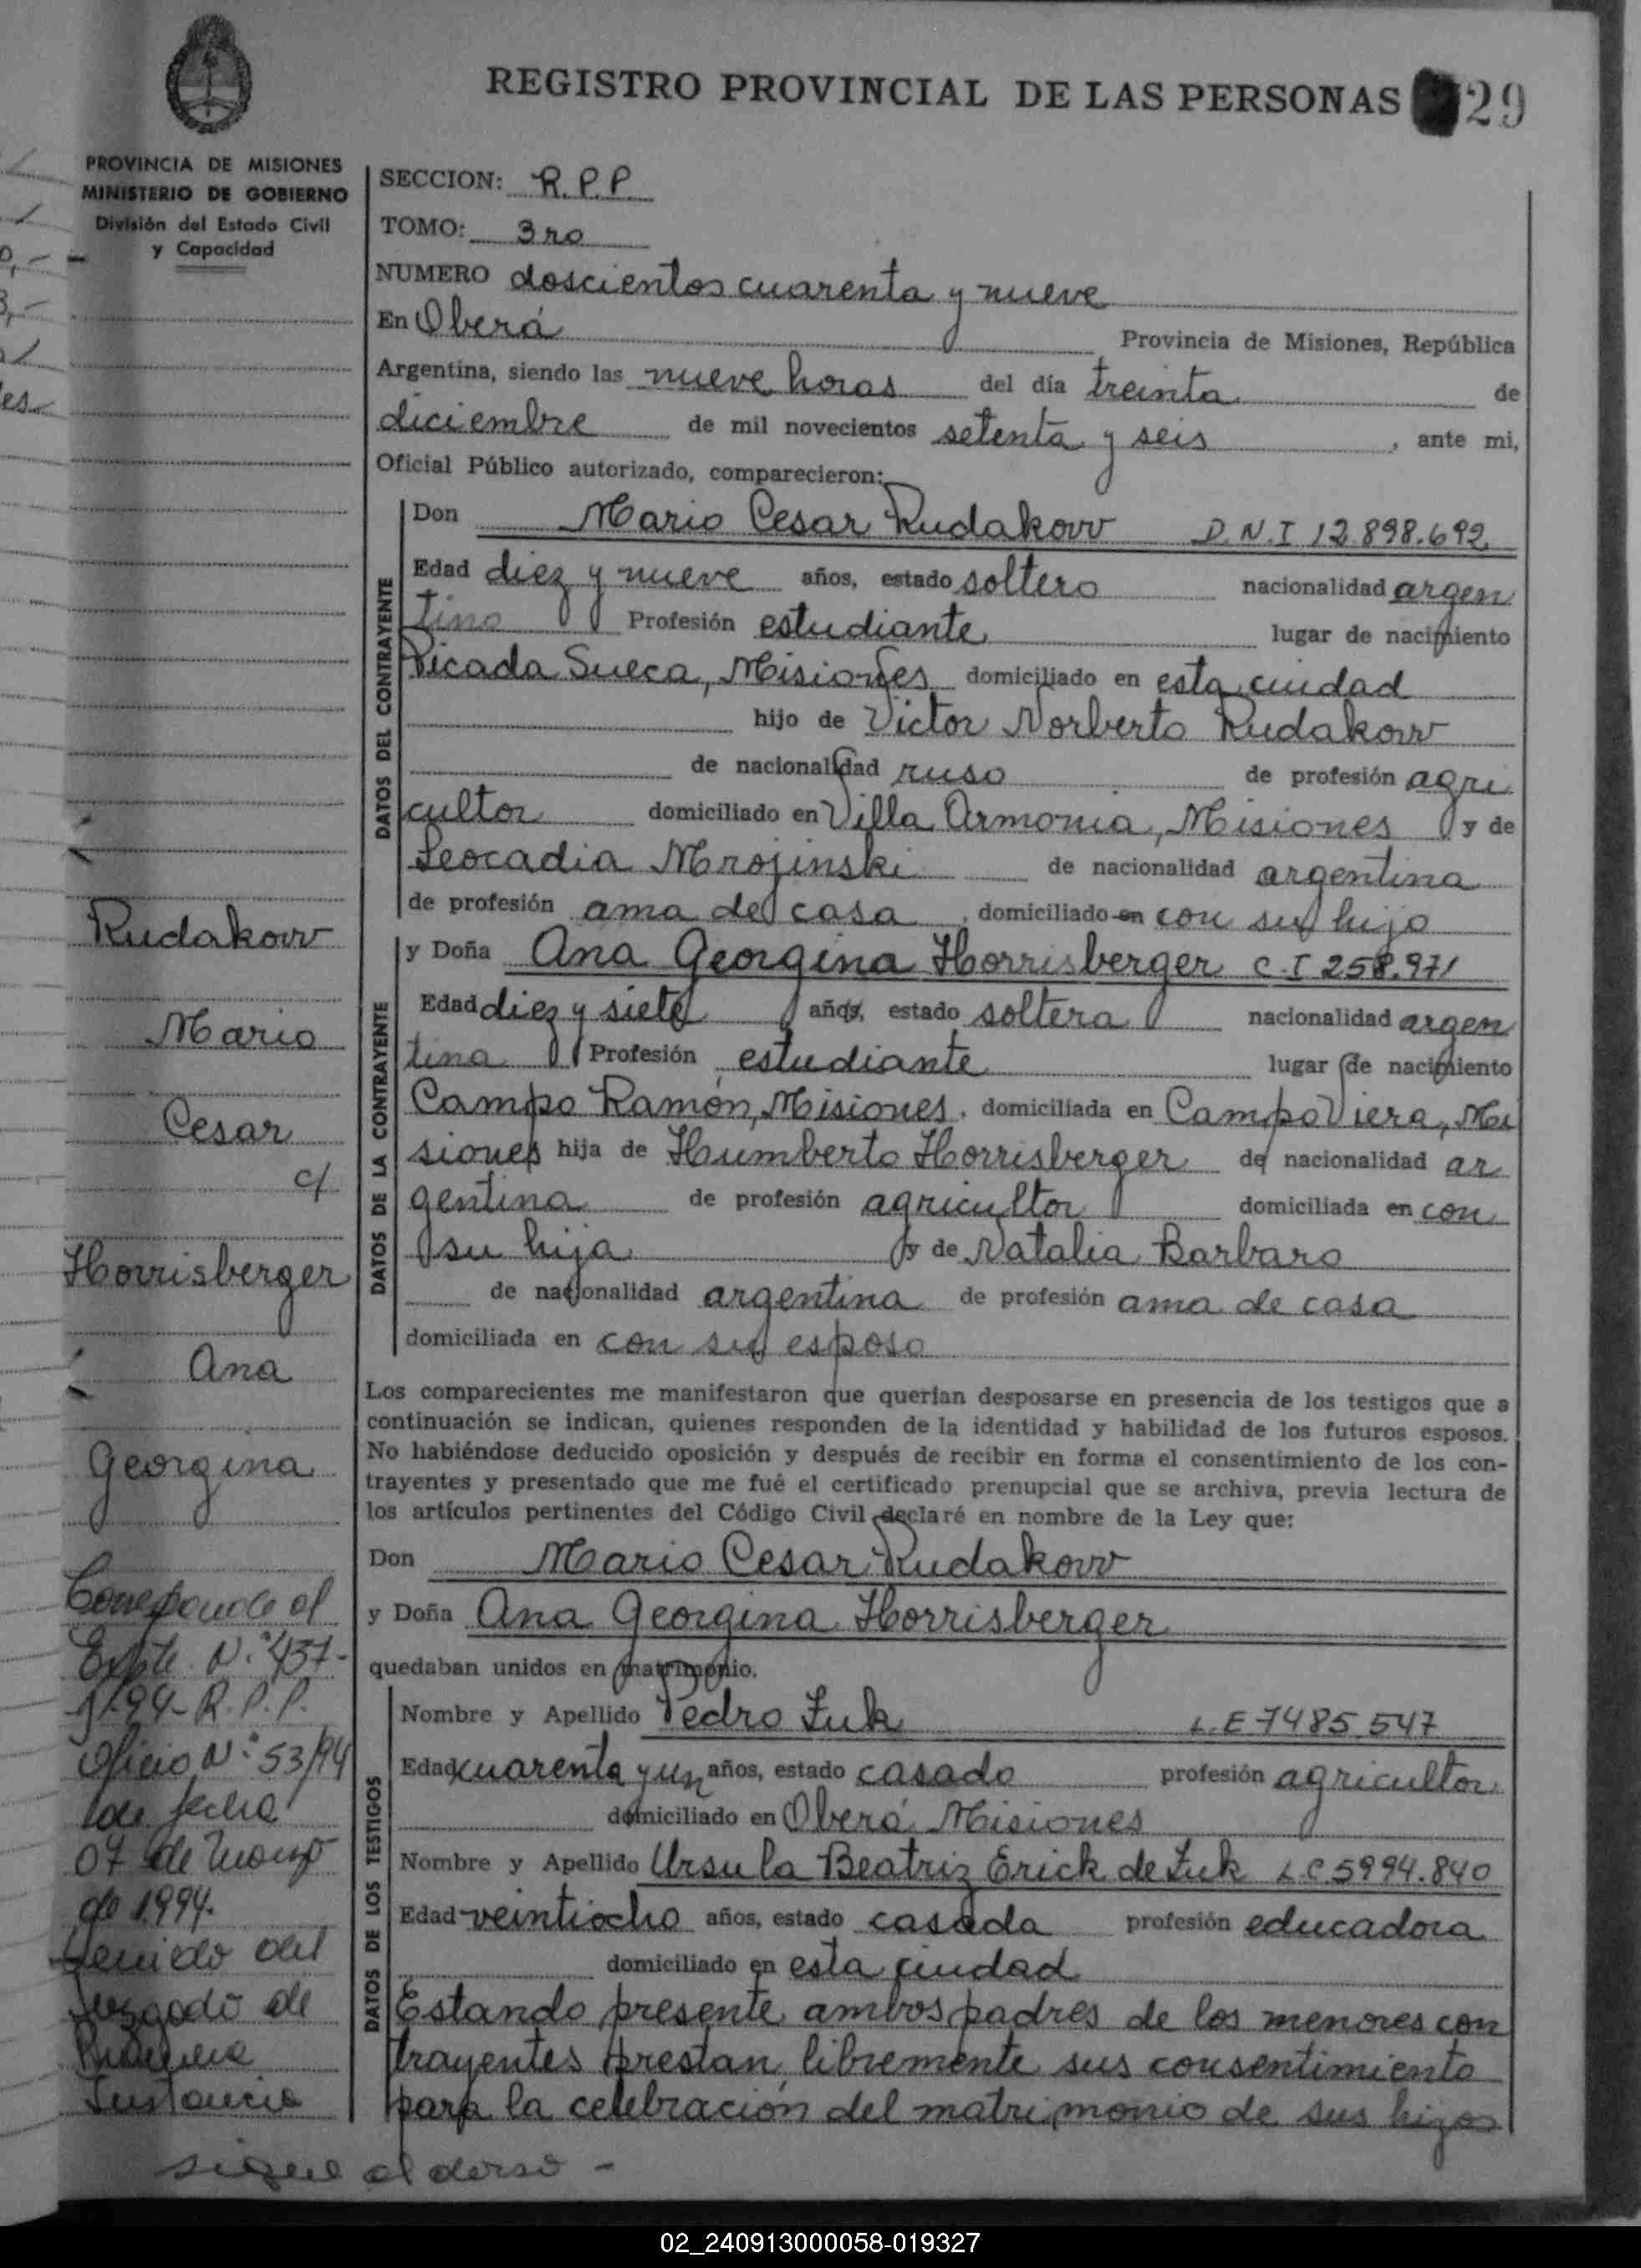 REGISTRO PROVINCIAL DE LAS PERSONAS 29
PROVINCIA DE MISIONES
MINISTERIO DE GOBIERNO
División del Estado Civil
y Capacidad
SECCION: R.P.P.
TOMO: 3ro
NUMERO doscientos cuarenta y nueve
En Oberá Provincia de Misiones, República
Argentina, siendo las nueve horas del día treinta de
diciembre de mil novecientos setenta y seis, ante mi,
Oficial Público autorizado, comparecieron:
DATOS DEL CONTRAYENTE
Don Mario Cesar Rudakow D.N.I 12.898.692
Edad diez y nueve años, estado soltero nacionalidad argen
tino Profesión estudiante lugar de nacimiento
Picada Sueca, Misiones domiciliado en esta ciudad
hijo de Victor Norberto Rudakow
de nacionalidad ruso de profesión agri
cultor domiciliado en Villa Armonia, Misiones y de
Leocadia Mrojinski de nacionalidad argentina
de profesión ama de casa, domiciliado en con su hijo
DATOS DE LA CONTRAYENTE
y Doña Ana Georgina Horrisberger C.I 258.971
Edad diez y siete años, estado soltera nacionalidad argen
tina Profesión estudiante lugar de nacimiento
Campo Ramón, Misiones. domiciliada en Campo Viera, Mi
siones hija de Humberto Horrisberger de nacionalidad ar
gentina de profesión agricultor domiciliada en con
su hija y de Natalia Barbaro
de nacionalidad argentina de profesión ama de casa
domiciliada en con su esposo
Los comparecientes me manifestaron que querían desposarse en presencia de los testigos que a
continuación se indican, quienes responden de la identidad y habilidad de los futuros esposos.
No habiéndose deducido oposición y después de recibir en forma el consentimiento de los con-
trayentes y presentado que me fué el certificado prenupcial que se archiva, previa lectura de
los artículos pertinentes del Código Civil declaré en nombre de la Ley que:
Don Mario Cesar Rudakow
y Doña Ana Georgina Horrisberger
quedaban unidos en matrimonio.
DATOS DE LOS TESTIGOS
Nombre y Apellido Pedro Zuk L.E 7485.547
Edad cuarenta y un años, estado casado profesión agricultor
domiciliado en Oberá Misiones
Nombre y Apellido Ursula Beatriz Erick de Zuk L.C 5994.840
Edad veintiocho años, estado casada profesión educadora
domiciliado en esta ciudad
Estando presente ambos padres de los menores con
trayentes prestan libremente sus consentimiento
para la celebración del matrimonio de sus hijos
Rudakow
Mario
Cesar
c/
Horrisberger
Ana
Georgina
Corresponde al
Expte. N:º 437-
1994- R.P.P.
Oficio N:º 53/94
de fecha
07 de Marzo
de 1994.
del
Juzgado de
Primera
Instancia
sigue al dorso -
02_240913000058-019327